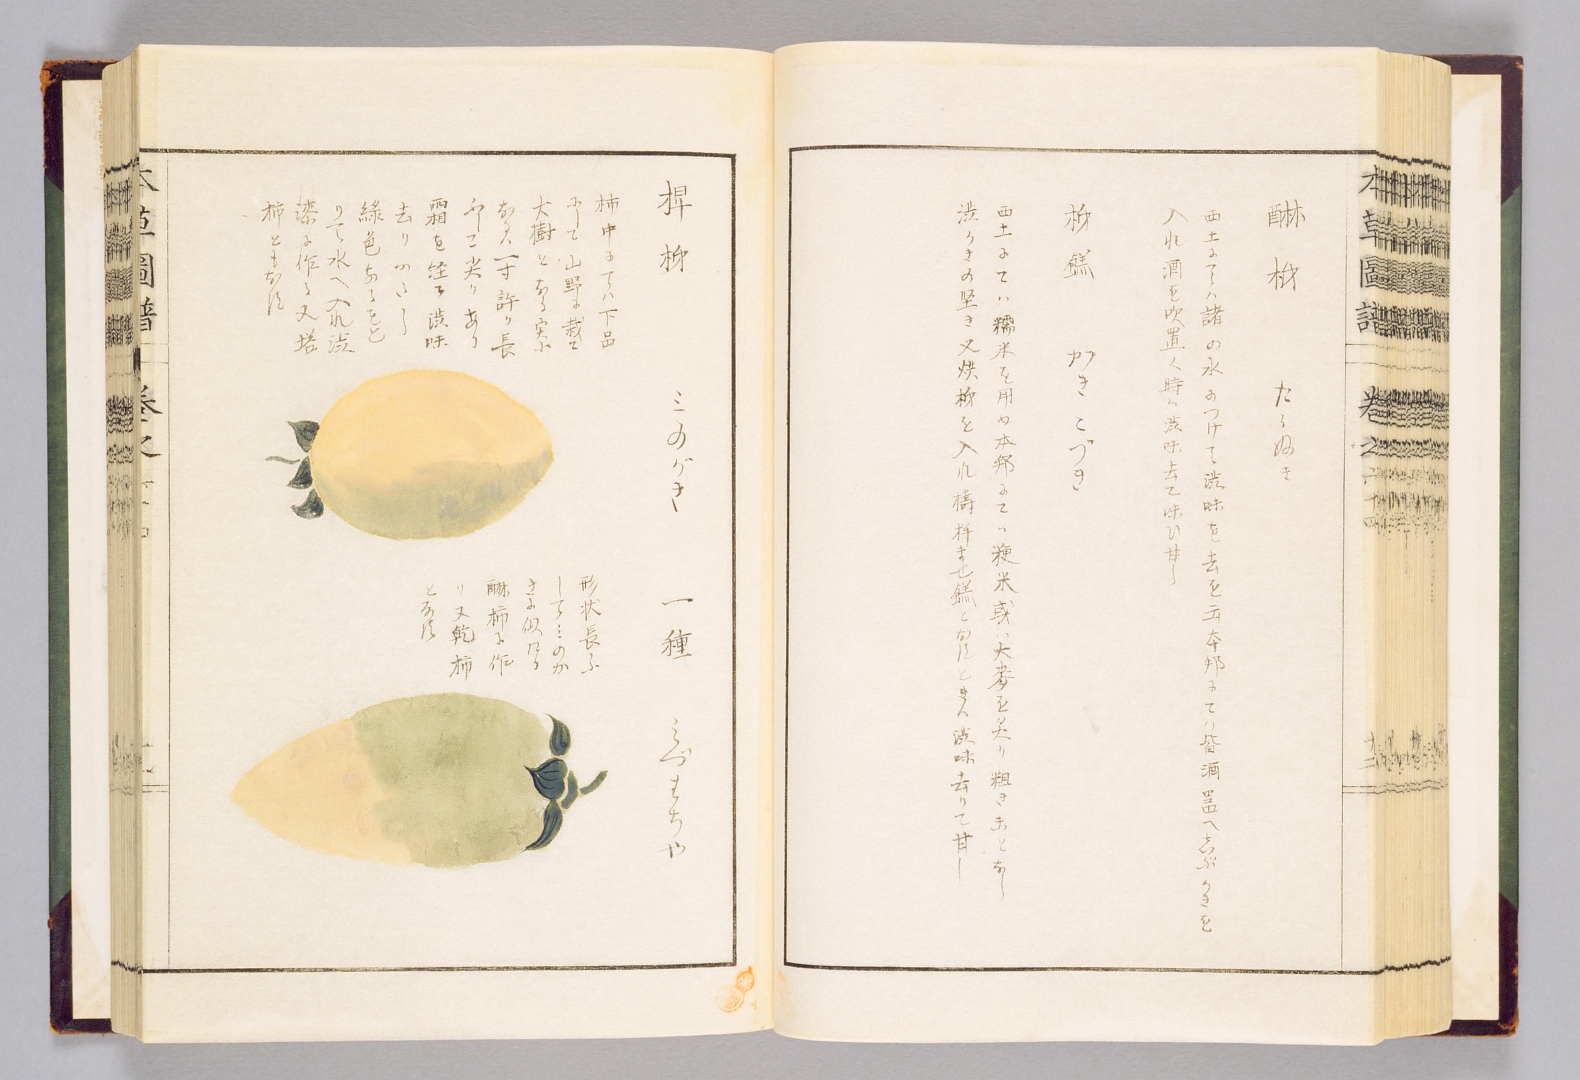 醂柹 たるぬき
西土にてハ諸の水につけて渋味を去を云本邦にてハ皆酒器へしぶかきを
入れ酒を吹置く時ハ渋味去て味ひ甘し
柹餻 かきこづき
西土にてハ糯米を用や本邦にてハ粳米或ハ大麥を炙り粗き末となし
渋かきの堅き又烘柹を入れ擣拌ませ餻となすときハ渋味去りて甘し
椑柹 ミのがき
柿中にてハ下品
にして山野に栽て
大樹となる実ハ
なハ一寸許り長
ふして尖りあり
霜を経て渋味
去り
緑色なるをと
りて水へ入れ渋
漆に作る又搭
柿ともなす
一種
形状長ふ
してミのが
きに似たる
醂柿に作
り又乾柿
となす
本草圖譜 卷之